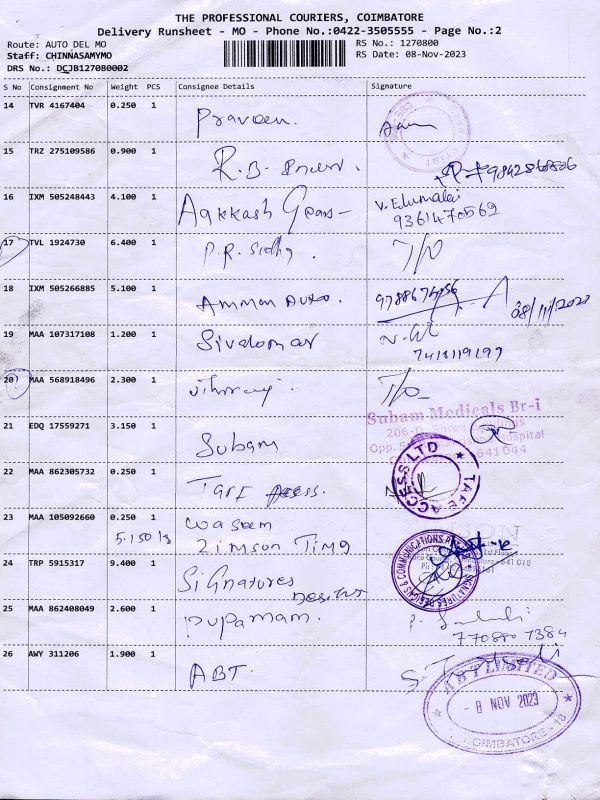 THE PROFESSIONAL COURIERS, COIMBATORE
Delivery Runsheet - MO - Phone No.:0422-3505555 - Page No.:2
Route: AUTO DEL MO
RS No.: 1270800
Staff: CHINNASAMYMO
RS Date: 08-Nov-2023
DRS No.: DCJB127080002
S No Consignment No Weight PCS Consignee Details Signature
14 TVR 4167404 0.250 1 Praveen.
15 TRZ 275109586 0.900 1 R.B.
16 IXM 505248443 4.100 1 Aakkash Gears- V. Elumalai
9361470569
17 TVL 1924730 6.400 1 P.R. T/O
18 IXM 505266885 5.100 1 Amman Auto. 08/11/2023
19 MAA 107317108 1.200 1 Sivakumar
7418119199
20 MAA 568918496 2.300 1 T/O
Subam Medicals Br-i
21 EDQ 17559271 3.150 1 Subam
Hospital
641044
22 MAA 862305732 0.250 1 Tafe Access. TAFE ACCESS LTD
23 MAA 105092660 0.250 1 Waseem
5.150 kg Zimson Time
641 018
24 TRP 5915317 9.400 1 Signatures Designs
SIGNATURES DESIGNS & COMMUNICATIONS
25 MAA 862408049 2.600 1 Pupamam.
770880 7384
26 AWY 311206 1.900 1 ABT.
ABT LIMITED
- 8 NOV 2023
COIMBATORE - 18